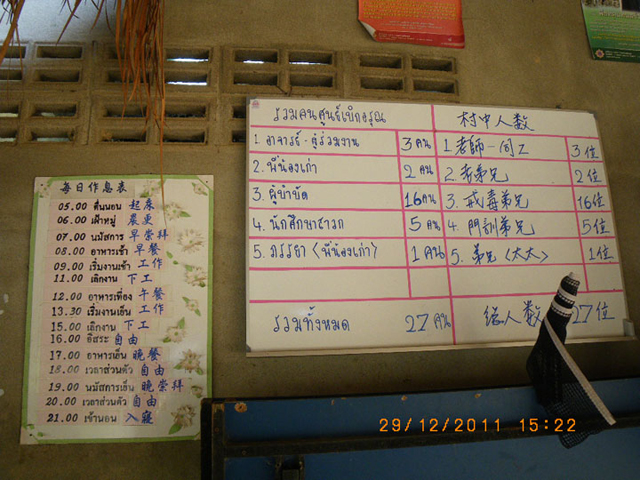 每日作息表
05.00 ตื่นนอน 起床
06.00 เฝ้าหมู่ 晨更
07.00 นมัสการ 早崇拜
08.00 อาหารเช้า 早餐
09.00 เริ่มงานเช้า 工作
11.00 เลิกงาน 下工
12.00 อาหารเที่ยง 午餐
13.30 เริ่มงานเย็น 工作
15.00 เลิกงาน 下工
16.00 อิสระ 自由
17.00 อาหารเย็น 晚餐
18.00 เวลาส่วนตัว 自由
19.00 นมัสการเย็น 晚崇拜
20.00 เวลาส่วนตัว 自由
21.00 เข้านอน 入寢
รวมคนศูนย์เบิกอรุณ 村中人数
1. อาจารย์ - ผู้ร่วมงาน 3 คน 1 老師 - 同工 3 位
2. พี่น้องเก่า 2 คน 2. 老弟兄 2 位
3. ผู้บำบัด 16 คน 3. 戒毒弟兄 16 位
4. นักศึกษาสาวก 5 คน 4. 門訓弟兄 5 位
5. ภรรยา (พี่น้องเก่า) 1 คน 5. 弟兄 (太太) 1 位
รวมทั้งหมด 27 คน 總人数 27 位
29/12/2011 15:22